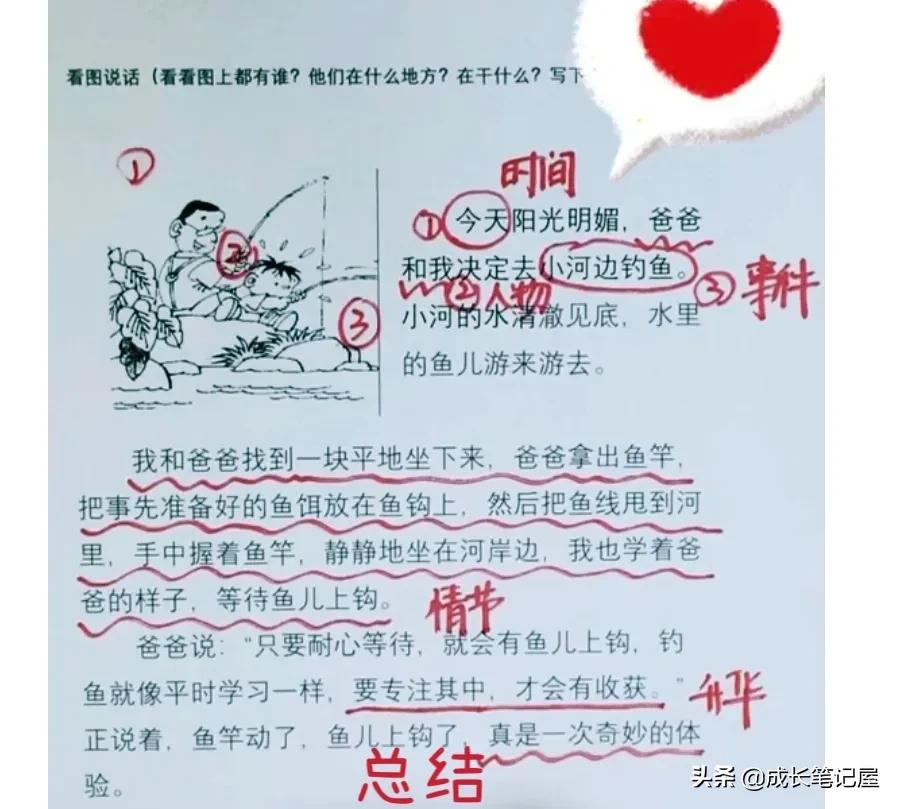 看图说话（看看图上都有谁？他们在什么地方？在干什么？写下
①
②
③
时间
①今天阳光明媚，爸爸
和我决定去小河边钓鱼。
②人物
③事件
小河的水清澈见底，水里
的鱼儿游来游去。
我和爸爸找到一块平地坐下来，爸爸拿出鱼竿，
把事先准备好的鱼饵放在鱼钩上，然后把鱼线甩到河
里，手中握着鱼竿，静静地坐在河岸边，我也学着爸
爸的样子，等待鱼儿上钩。
情节
爸爸说：“只要耐心等待，就会有鱼儿上钩，钓
鱼就像平时学习一样，要专注其中，才会有收获。”
升华
正说着，鱼竿动了，鱼儿上钩了，真是一次奇妙的体
验。
总结
头条@成长笔记屋